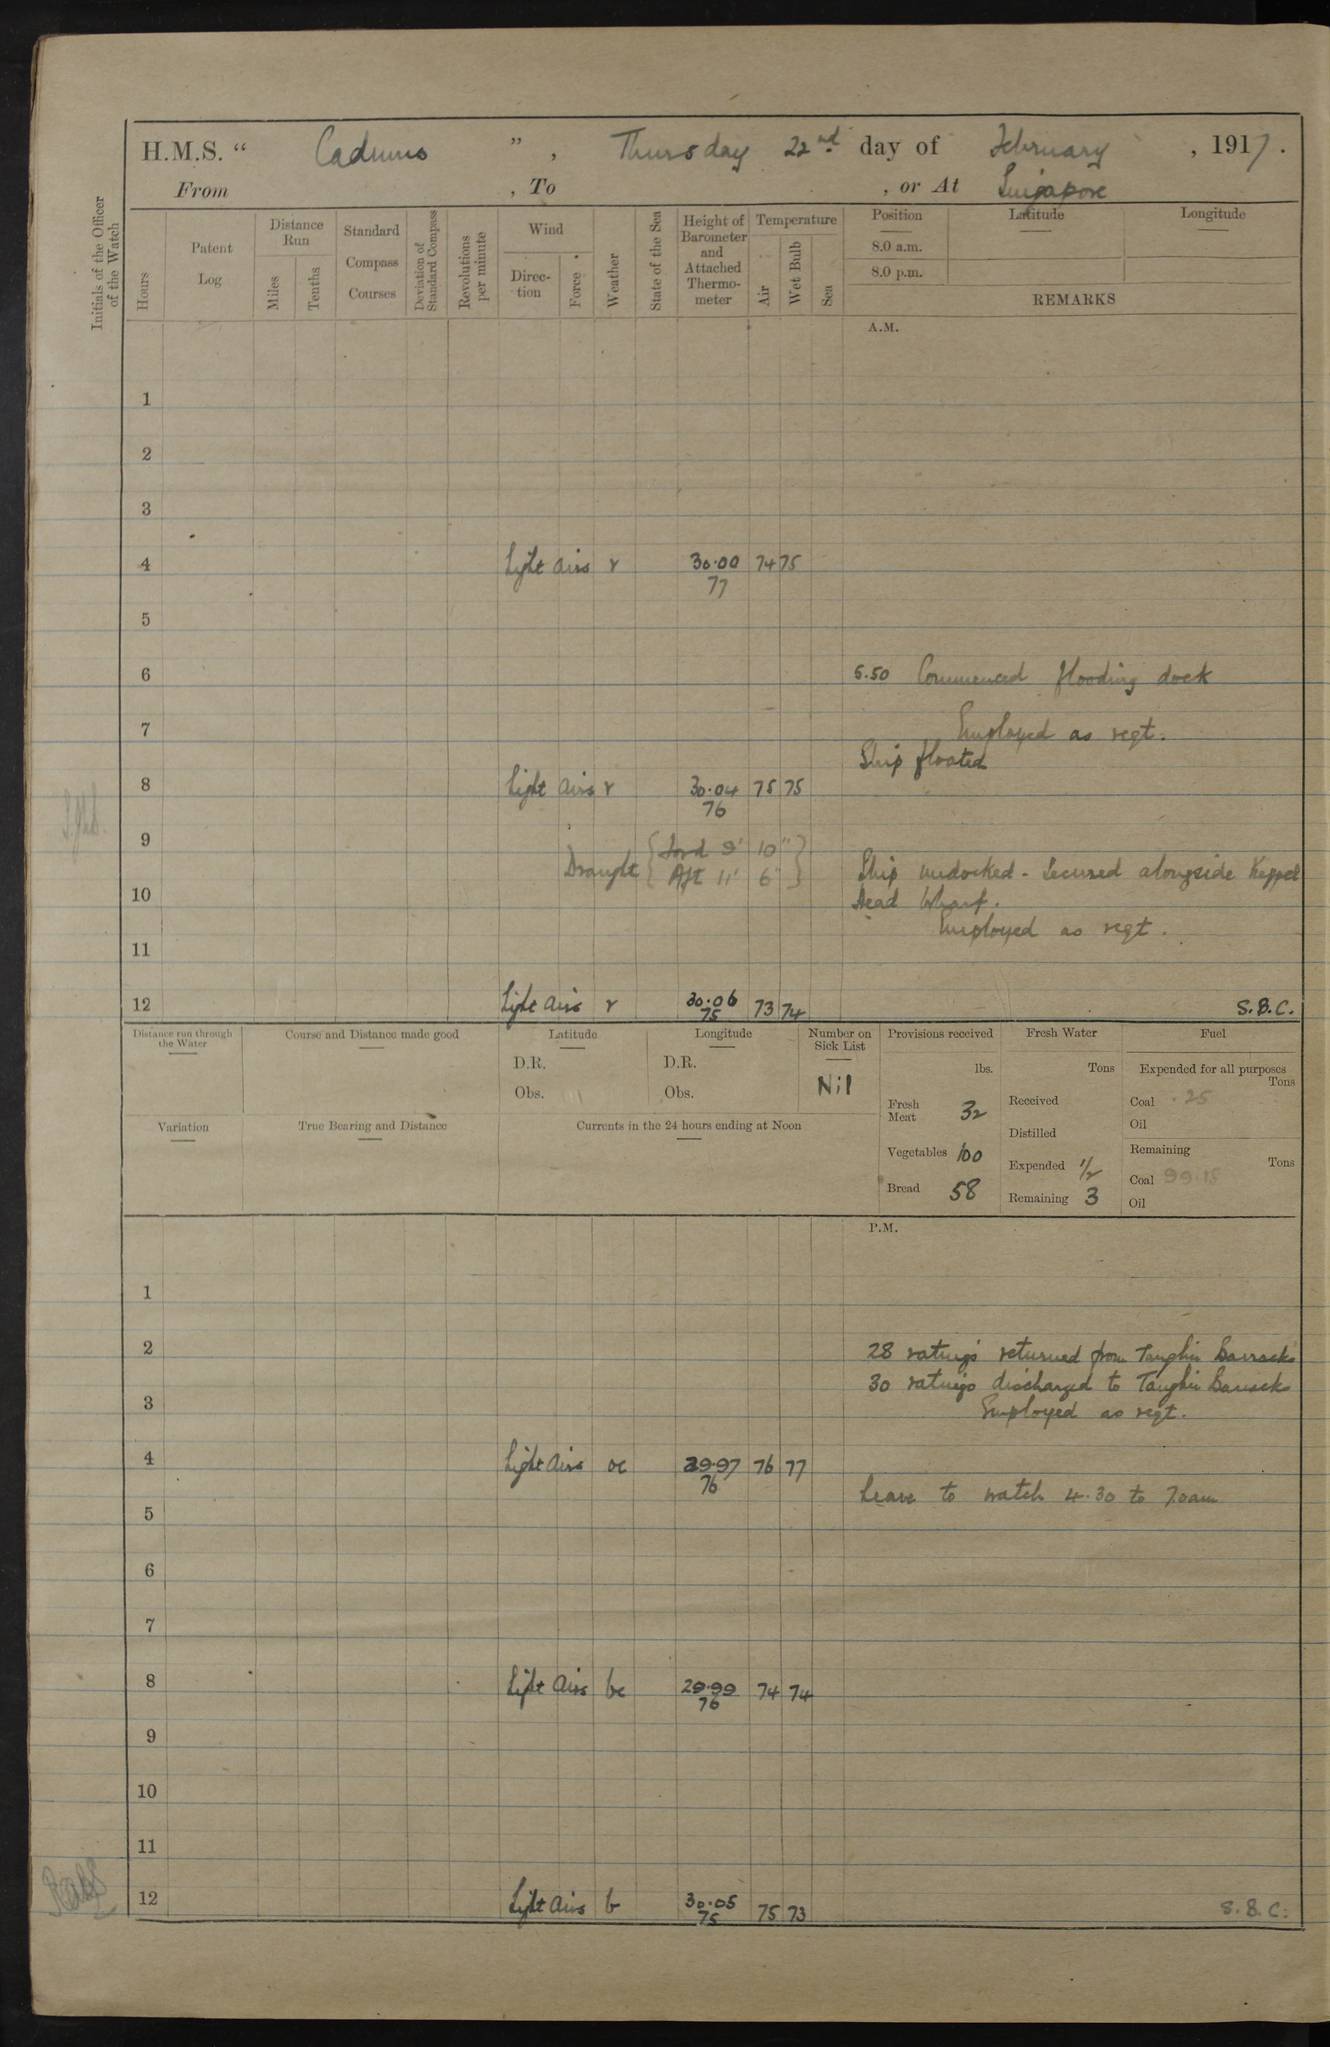 H.M.S. “ Cadmus ” , Thursday 22nd day of February , 1917 .
From , To , or At Singapore
Initials of the Officer of the Watch
Hours
Patent Log
Distance Run
Miles
Tenths
Standard Compass Courses
Deviation of Standard Compass
Revolutions per minute
Wind
Direction
Force
Weather
State of the Sea
Height of Barometer and Attached Thermometer
Temperature
Air
Wet Bulb
Sea
Position Latitude Longitude
8.0 a.m.
8.0 p.m.
REMARKS
A.M.
1
2
3
4 Light airs r 30.00 74 75
77
5
6 5.50 Commenced flooding dock
7 Employed as reqt.
Ship floated
8 Light airs r 30.04 75 75
76
9 Draught { Ford 9' 10"
Aft 11' 6" }
Ship undocked - Secured alongside Keppel
10 Head Wharf.
Employed as reqt.
11
12 Light airs r 30.06 73 74 S.B.C.
75
Distance run through the Water
Course and Distance made good
Latitude
D.R.
Obs.
Longitude
D.R.
Obs.
Number on Sick List
Nil
Provisions received
lbs.
Fresh Meat 32
Vegetables 100
Bread 58
Fresh Water
Tons
Received
Distilled
Expended 1/2
Remaining 3
Fuel
Expended for all purposes
Tons
Coal .25
Oil
Remaining
Tons
Coal 99.15
Oil
Variation
True Bearing and Distance
Currents in the 24 hours ending at Noon
P.M.
1
2 28 ratings returned from Tanglin Barracks
30 ratings discharged to Tanglin Barracks
3 Employed as reqt.
4 Light airs oc 29.97 76 77
76
Leave to watch 4.30 to 7.0am
5
6
7
8 Light airs bc 29.99 74 74
76
9
10
11
12 Light airs b 30.05 75 73 S.B.C.
75